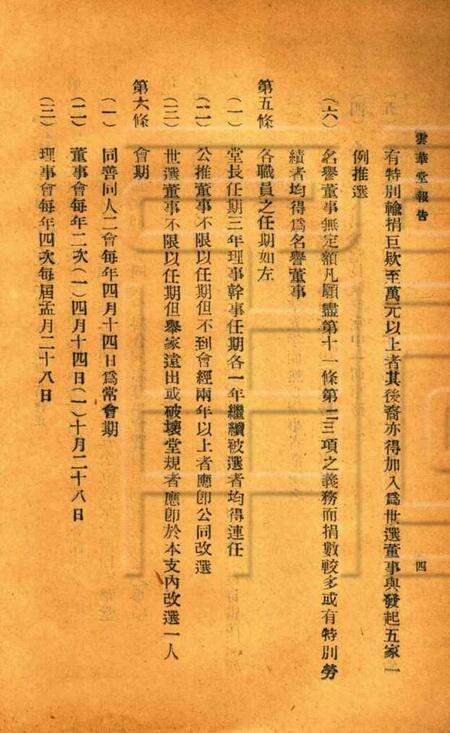 雲華堂報告
四
有特別輸捐巨欵至萬元以上者其後裔亦得加入爲世選董事與發起五家一
例推選
(六)名譽董事無定額凡願盡第十一條第二三項之義務而捐數較多或有特別勞
績者均得爲名譽董事
第五條 各職員之任期如左
(一)堂長任期三年理事幹事任期各一年繼續被選者均得連任
(二)公推董事不限以任期但不到會經兩年以上者應卽公同改選
(三)世選董事不限以任期但舉家遠出或破壞堂規者應卽於本支內改選一人
第六條 會期
(一)同善同人二會每年四月十四日爲常會期
(二)董事會每年二次(一)四月十四日(一)十月二十八日
(三)理事會每年四次每屆孟月二十八日